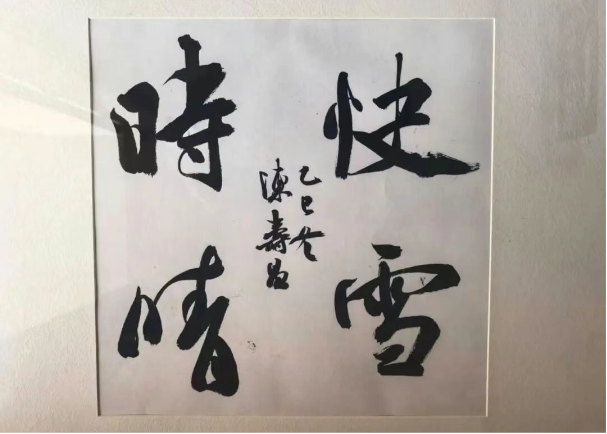 快雪
時晴
乙巳冬
陳壽昌